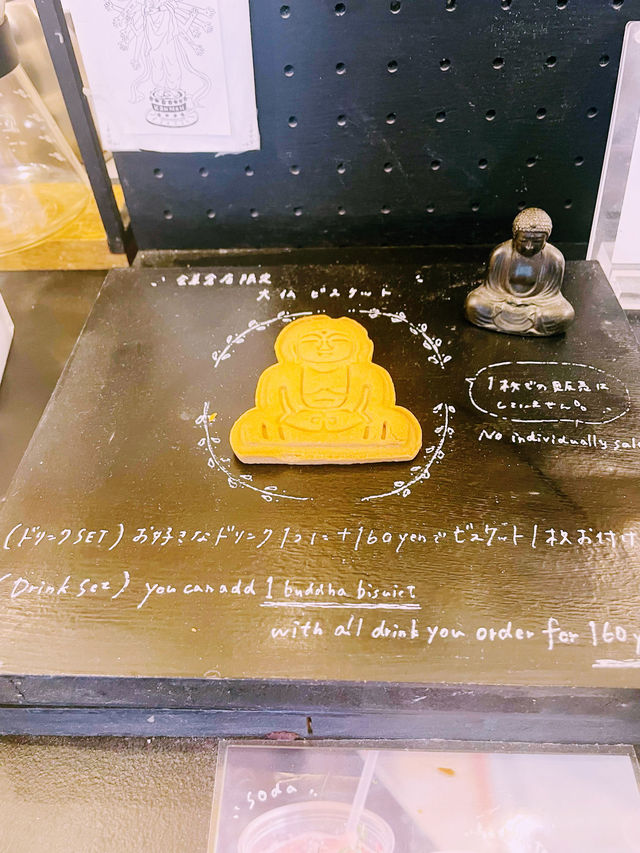 大仏ビスケット
1枚での販売は
していません。
No individually sale
(ドリンクSET) お好きなドリンク1つに+160yenでビスケット1枚お付け
(Drink Set) you can add 1 buddha bisuiet
with all drink you order for 160 y
soda